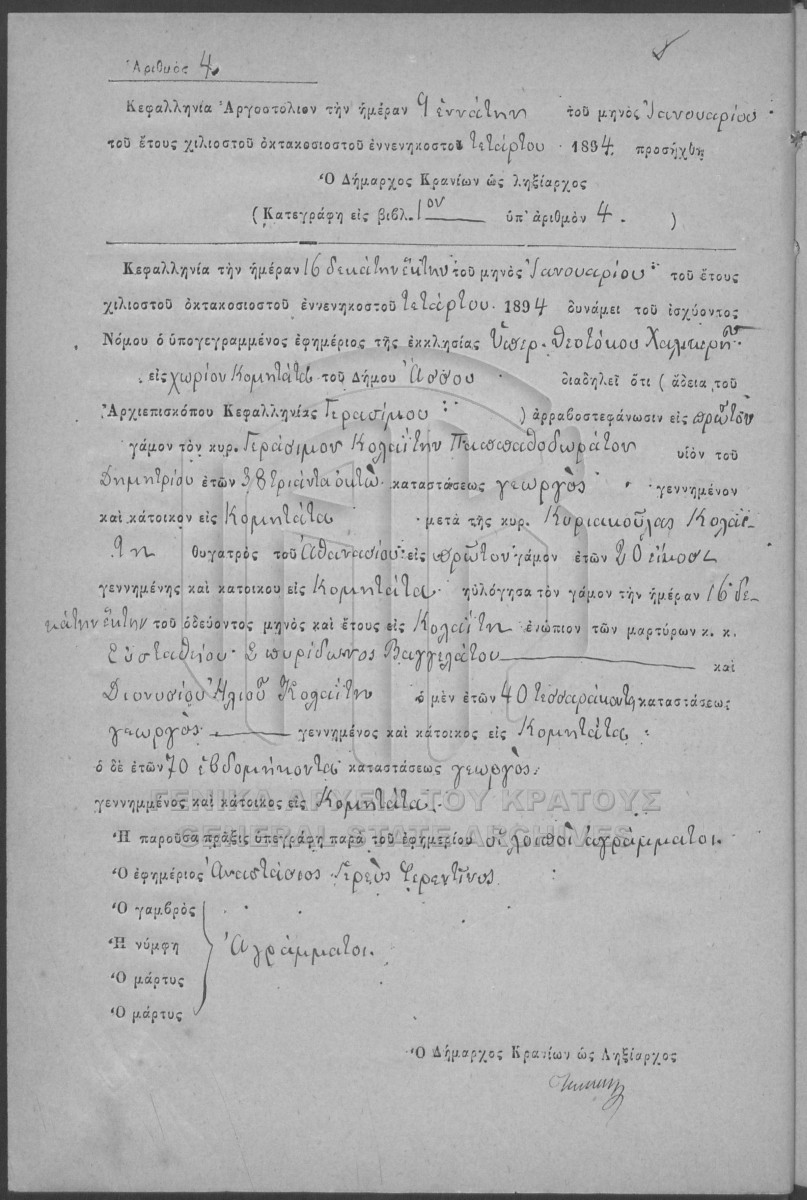 Ἀριθμὸς 4
Κεφαλληνία Ἀργοστόλιον τὴν ἡμέραν 9 ἐννάτην τοῦ μηνὸς Ἰανουαρίου
τοῦ ἔτους χιλιοστοῦ ὀκτακοσιοστοῦ ἐννενηκοστοῦ τετάρτου 1894 προσήχθη
Ὁ Δήμαρχος Κρανίων ὡς ληξίαρχος
(Κατεγράφη εἰς βιβλ. 1ον ὑπ' ἀριθμὸν 4. )
Κεφαλληνία τὴν ἡμέραν 16 δεκάτην ἕκτην τοῦ μηνὸς Ἰανουαρίου τοῦ ἔτους
χιλιοστοῦ ὀκτακοσιοστοῦ ἐννενηκοστοῦ τετάρτου 1894 δυνάμει τοῦ ἰσχύοντος
Νόμου ὁ ὑπογεγραμμένος ἐφημέριος τῆς ἐκκλησίας Ὑπερ. Θεοτόκου
εἰς χωρίον Κομητάτα τοῦ Δήμου Ἄσσου διαδηλεῖ ὅτι ( ἀδεία τοῦ
Ἀρχιεπισκόπου Κεφαλληνίας Γερασίμου ) ἀρραβοστεφάνωσιν εἰς πρῶτον
γάμον τὸν κυρ. Γεράσιμον Κολαΐτην Παππαθοδωράτον υἱὸν τοῦ
Δημητρίου ἐτῶν 38 τριάντα ὀκτὼ καταστάσεως γεωργὸς γεννημένον
καὶ κάτοικον εἰς Κομητάτα μετὰ τῆς κυρ. Κυριακούλας Κολαΐ-
τη θυγατρὸς τοῦ Ἀθανασίου εἰς πρῶτον γάμον ἐτῶν 20 εἴκοσι
γεννημένης καὶ κατοίκου εἰς Κομητάτα ηὐλόγησα τὸν γάμον τὴν ἡμέραν 16 δε-
κάτην ἕκτην τοῦ ὁδεύοντος μηνὸς καὶ ἔτους εἰς Κολαΐτη ἐνώπιον τῶν μαρτύρων κ. κ.
Εὐσταθίου Σπυρίδωνος Βαγγελάτου καὶ
Διονυσίου Ἠλιοῦ Κολαΐτη ὁ μὲν ἐτῶν 40 τεσσαράκοντα καταστάσεως
γεωργὸς γεννημένος καὶ κάτοικος εἰς Κομητάτα
ὁ δὲ ἐτῶν 70 ἑβδομήκοντα καταστάσεως γεωργὸς
γεννημμένος καὶ κάτοικος εἰς Κομητάτα
ΓΕΝΙΚΑ ΑΡΧΕΙΑ ΤΟΥ ΚΡΑΤΟΥΣ
GENERAL STATE ARCHIVES
Ἡ παροῦσα πρᾶξις ὑπεγράφη παρὰ τοῦ ἐφημερίου οἱ λοιποὶ ἀγράμματοι.
Ὁ ἐφημέριος Ἀναστάσιος Ἱερεὺς Φερεντῖνος
Ὁ γαμβρὸς
Ἡ νύμφη Ἀγράμματοι.
Ὁ μάρτυς
Ὁ μάρτυς
Ὁ Δήμαρχος Κρανίων ὡς Ληξίαρχος